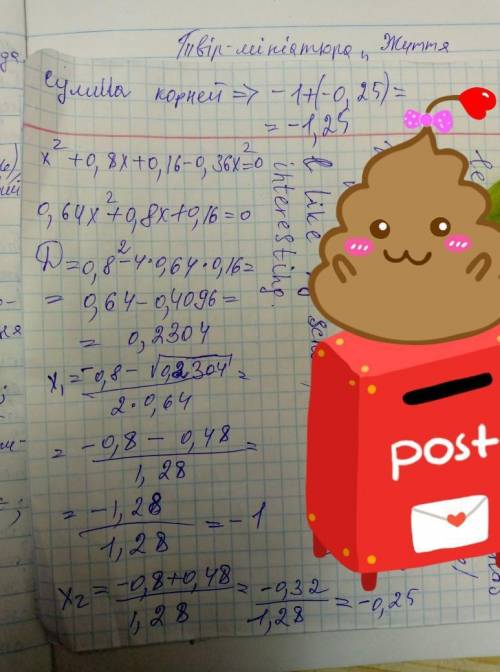 Твір-мініатюра „Життя
Сумма корней => -1+(-0,25)=
= -1,25
x²+0,8x+0,16-0,36x²=0
0,64x²+0,8x+0,16=0
D=0,8²-4·0,64·0,16=
= 0,64-0,4096=
= 0,2304
x₁= (-0,8-√0,2304)/(2·0,64) =
= (-0,8-0,48)/1,28 =
= -1,28/1,28 = -1
x₂= (-0,8+0,48)/1,28 = -0,32/1,28 = -0,25
I like
interesting.
post